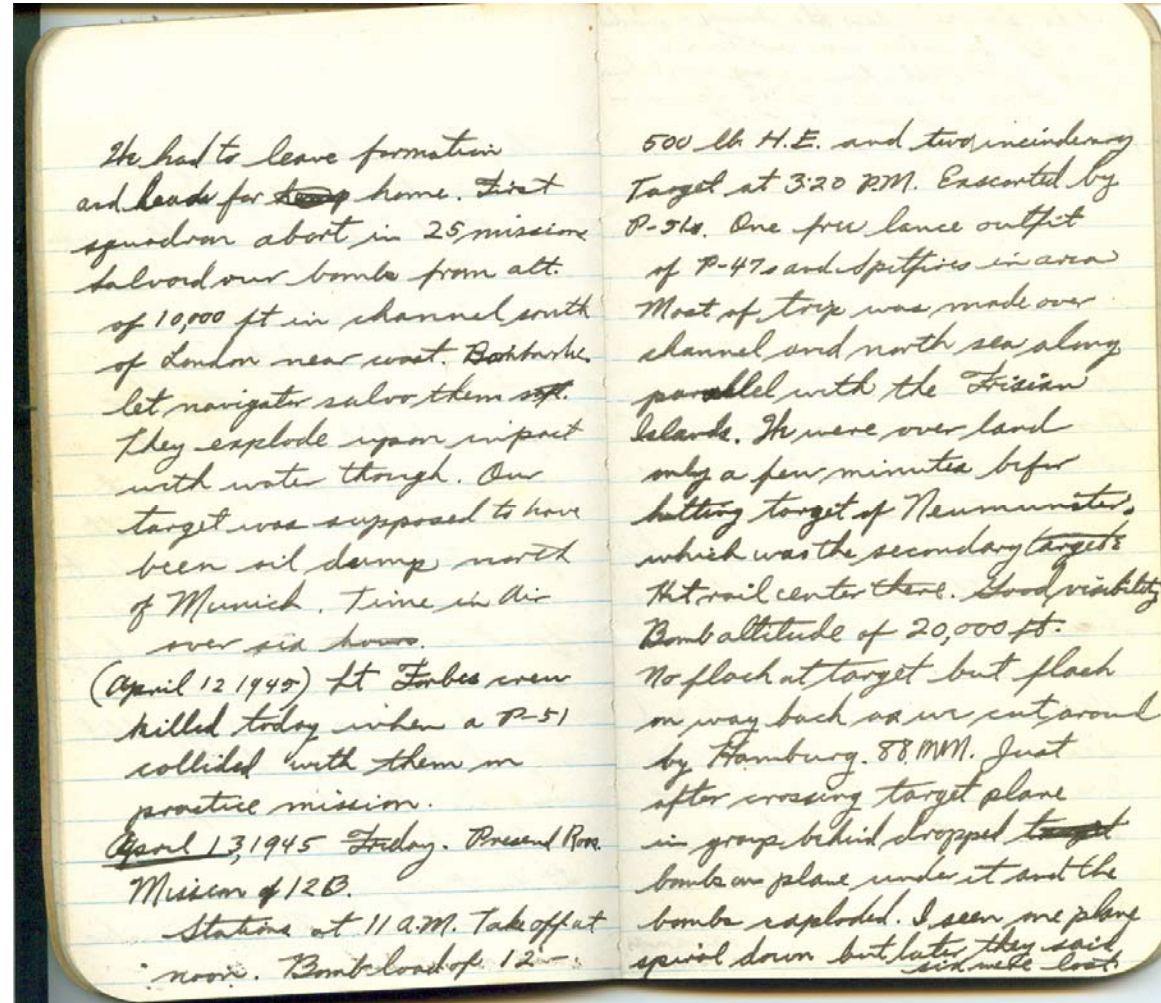 We had to leave formation
and heade for home. First
squadron abort in 25 missions
Salvoed our bombs from alt.
of 10,000 ft in channel south
of London near coast.
let navigator salvo them
They explode upon impact
with water though. Our
target was supposed to have
been oil dump north
of Munich. Time in Air
over six hours.
(April 12 1945) Lt Forbes crew
killed today when a P-51
collided with them on
practice mission.
April 13, 1945 Friday.
Mission of 12B.
Stations at 11 A.M. Take off at
noon. Bomb load of 12 -
500 lb. H.E. and two incinderary
Target at 3:20 P.M. Escorted by
P-51s. One free lance outfit
of P-47s and Spitfires in area
Most of trip was made over
channel and north sea along
parallel with the Frisian
Islands. We were over land
only a few minutes befor
hitting target of Neumunster.
which was the secondary target.
Hit rail center there. Good visibility
Bomb altitude of 20,000 ft.
No flack at target but flack
on way back as we cut around
by Hamburg. 88 MM. Just
after crossing target plane
in group behind dropped
bombs on plane under it and the
bombs exploded. I seen one plane
spiral down but later they said
six were lost.